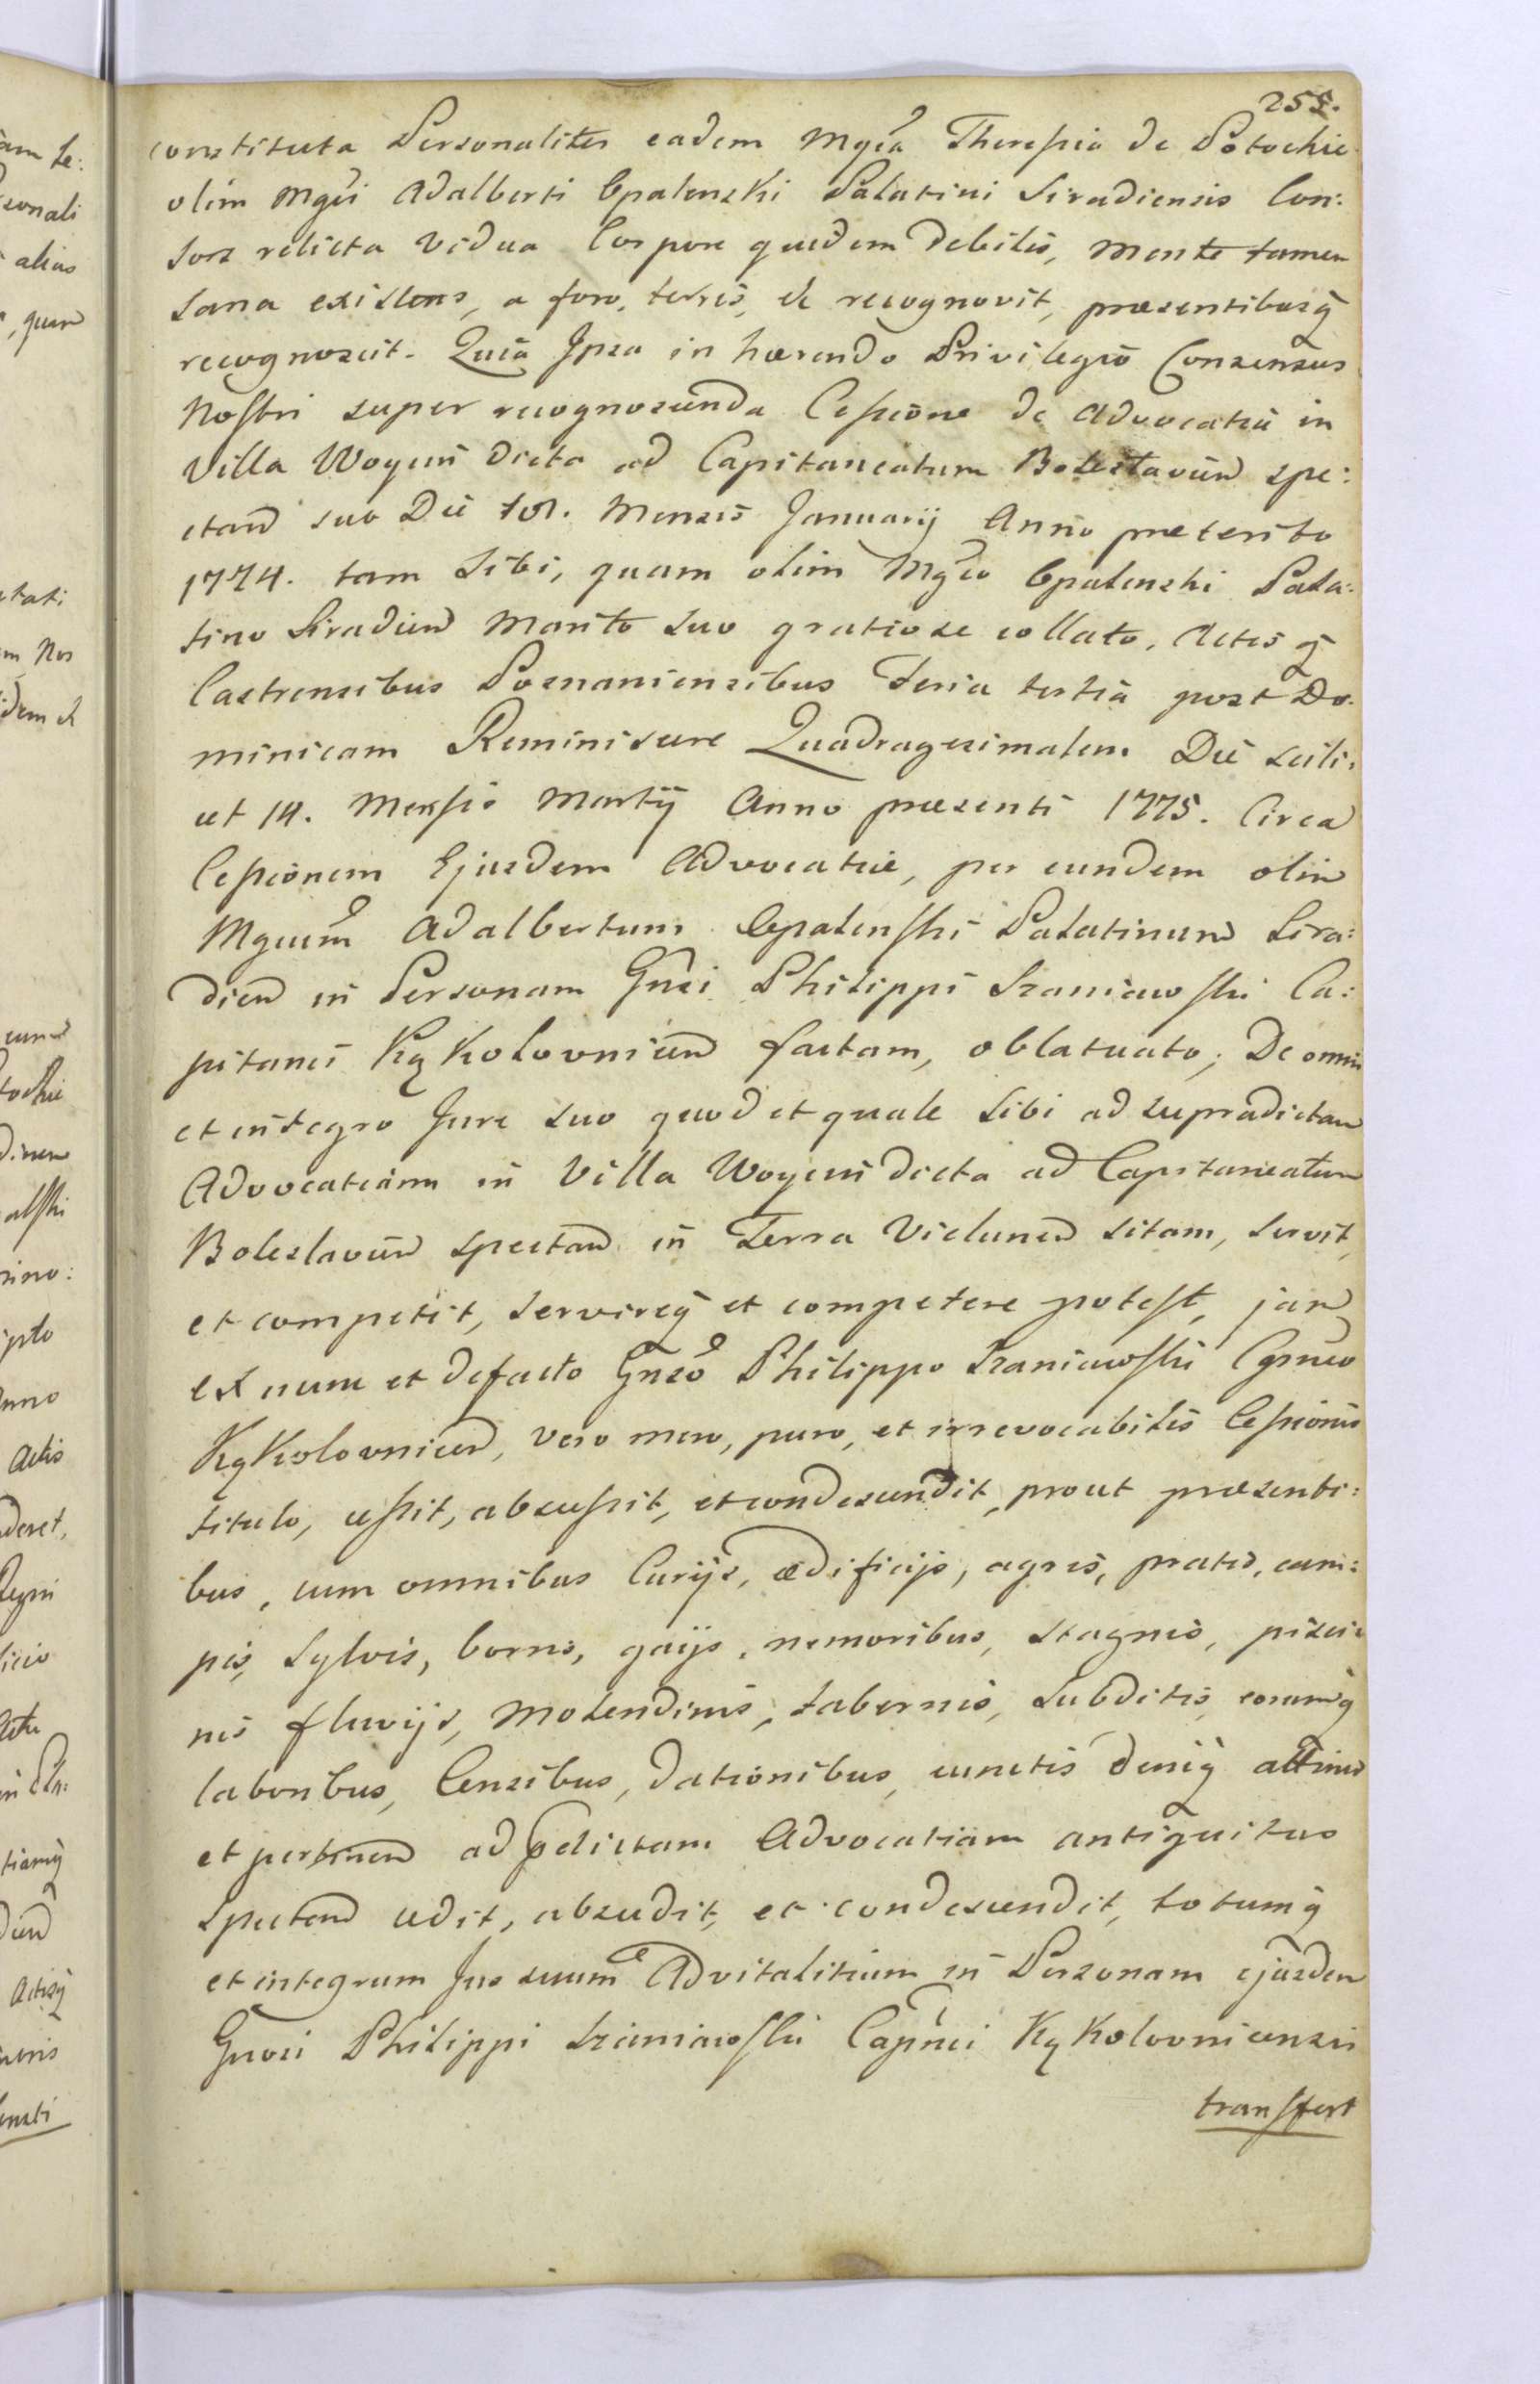 255.
constituta Personaliter eadem Mgca Theressia de Potockie
olim Mgci Adalberti Opalenski Palatini Siradiensis Con:
sors relicta Vidua Corpore quidem debilis, Mente tamen
sana existens, a foro, terris, et recognovit, præsentibusq
recognoscit. Quia Ipsa in hærendo Privilegio Consensus
Nostri super recognoscenda Cessione de Advocatia in
Villa Woycin dicta ad Capitaneatum Boleslavien spe:
ctan sub Die 10. Mensis Januarij Anno præterito
1774. tam Sibi, quam olim Mgco Opalenski Pala:
tino Siradien Marito suo gratiose collato, Actis q
Castrensibus Posnaniensibus Feria tertia post Do:
minicam Reminiscere Quadragesimalem Die scili:
cet 14. Mensis Martij Anno præsenti 1775. Circa
Cessionem Ejusdem Advocatiæ, per eundem olim
Mgcum Adalbertum Opalenski Palatinum Sira:
dien in Personam Gnsi Philippi Szaniawski Ca:
pitanei Kąkolovnicen factam, oblatuato; De omni
et integro Jure suo quod et quale Sibi ad supradictam
Advocatiam in Villa Woycin dicta ad Capitaneatum
Boleslavien spectan in Terra Vielunen sitam, servit,
et competit, servireq et competere potest, jam
ex nunc et de facto Gnso Philippo Szaniawski Cpneo
Kąkolovnicen, vero mero, puro, et irrevocabilis Cessionis
titulo, cessit, abscessit, et condescendit, prout præsenti:
bus, cum omnibus Curijs, ædificijs, agris, pratis, cam:
pis, Sylvis, borris, gaijs, nemoribus, stagnis, pisci:
nis fluvijs, Molendinis, tabernis, Subditis, eorumq
laboribus, Censibus, dationibus, cunctis deniq attinen
et pertinen ad pdictam Advocatiam antiquitus
Spectan cedit, abscedit, et condescendit, totumq
et integrum Jus suum Advitalitium in Personam ejusdem
Gnosi Philippi Szaniawski Capnei Kąkolovnicensis
transfert